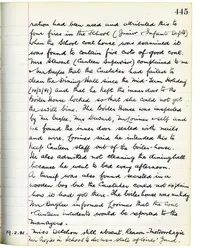 445
ration had been used and attributed this to
four fires in the School (Junior & Infants Depts)
When the School coal house was examined it
was found to contain five cwts of good coal.
Mrs Stewart (Canteen Supervisor) complained to me
Mr Bayles that the Caretaker had failed to
clean the Dining Hall since the Mid-Term Holiday
and that he kept the inner door to the
Boiler House locked so that she could not get
the swill bins. The Boiler House was inspected
by Mr Bayles, Mrs Stewart, and myself and
he found the inner door sealed with nails
and wire. said he intended this to
keep Canteen staff out of the boiler-house.
He also admitted not cleaning the dining hall
because he went to bed every afternoon
A was also found nestled in a
wooden box but the Caretaker could not explain
how it had got there. The boiler house was untidy
Mr Bayles informed that the
Canteen incidents would be referred to the
managers.
19.2.51. Miss absent. Reason
Mr Bayles in School to discuss date of